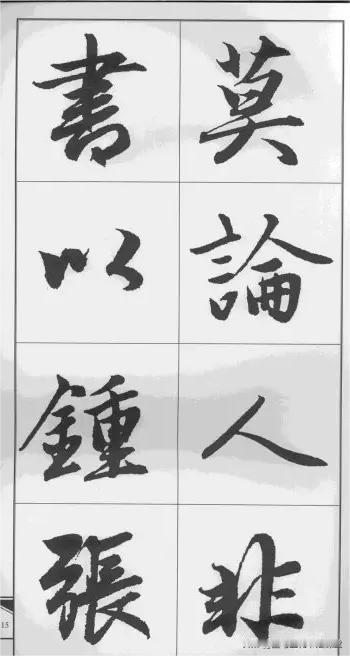 莫論人非
書以鍾張
15